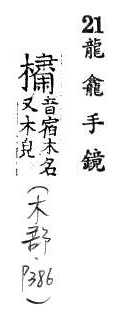 21龍龕手鏡
橚
音宿木名
又木皃
(木部.P386)